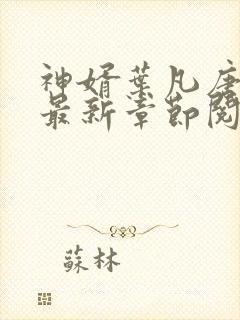 神婿葉凡唐
最新章節閱
蘇林